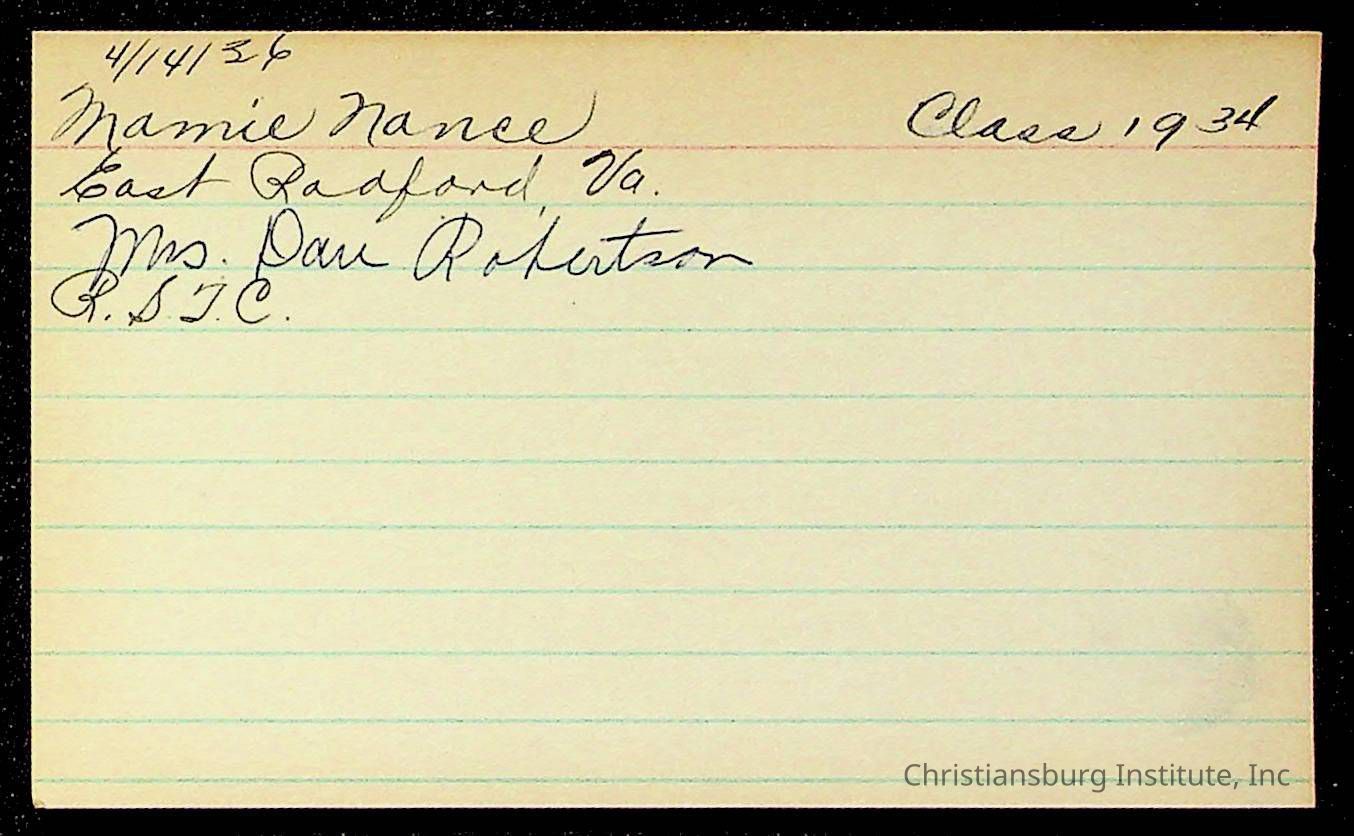 4/14/36
Mamie Nance Class 1934
East Radford, Va.
Mrs. Robertson
R.S.T.C.
Christiansburg Institute, Inc